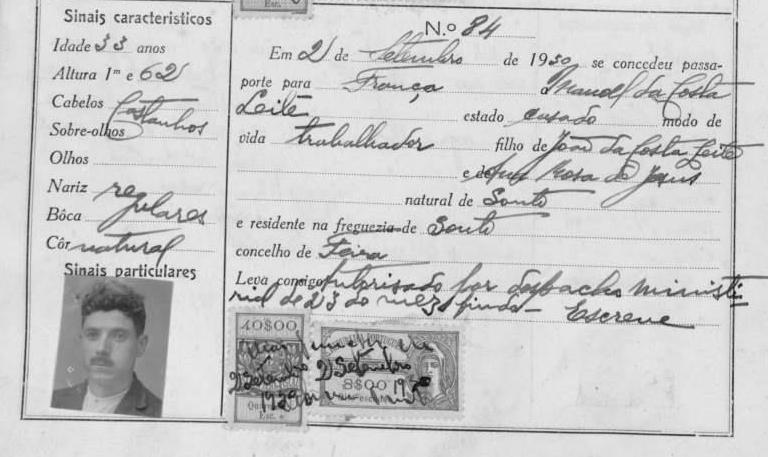 Sinais característicos
Idade 33 anos
Altura 1m e 62
Cabelos Castanhos
Sobre-olhos
Olhos
Nariz re
Bôca gulares
Côr natural
Sinais particulares
Esc.
N.º 84
Em 2 de Setembro de 1930 se concedeu passa-
porte para França Manoel da Costa
Leite estado casado modo de
vida trabalhador filho de João da Costa Leite
e de Ana Rosa de Jesus
natural de Souto
e residente na freguezia de Souto
concelho de Feira
Leva consigo Autorisado por despacho ministe
rial de 23 do mez findo - Escreve
40$00
2 Setembro 2 Setembro
8$00
Esc.